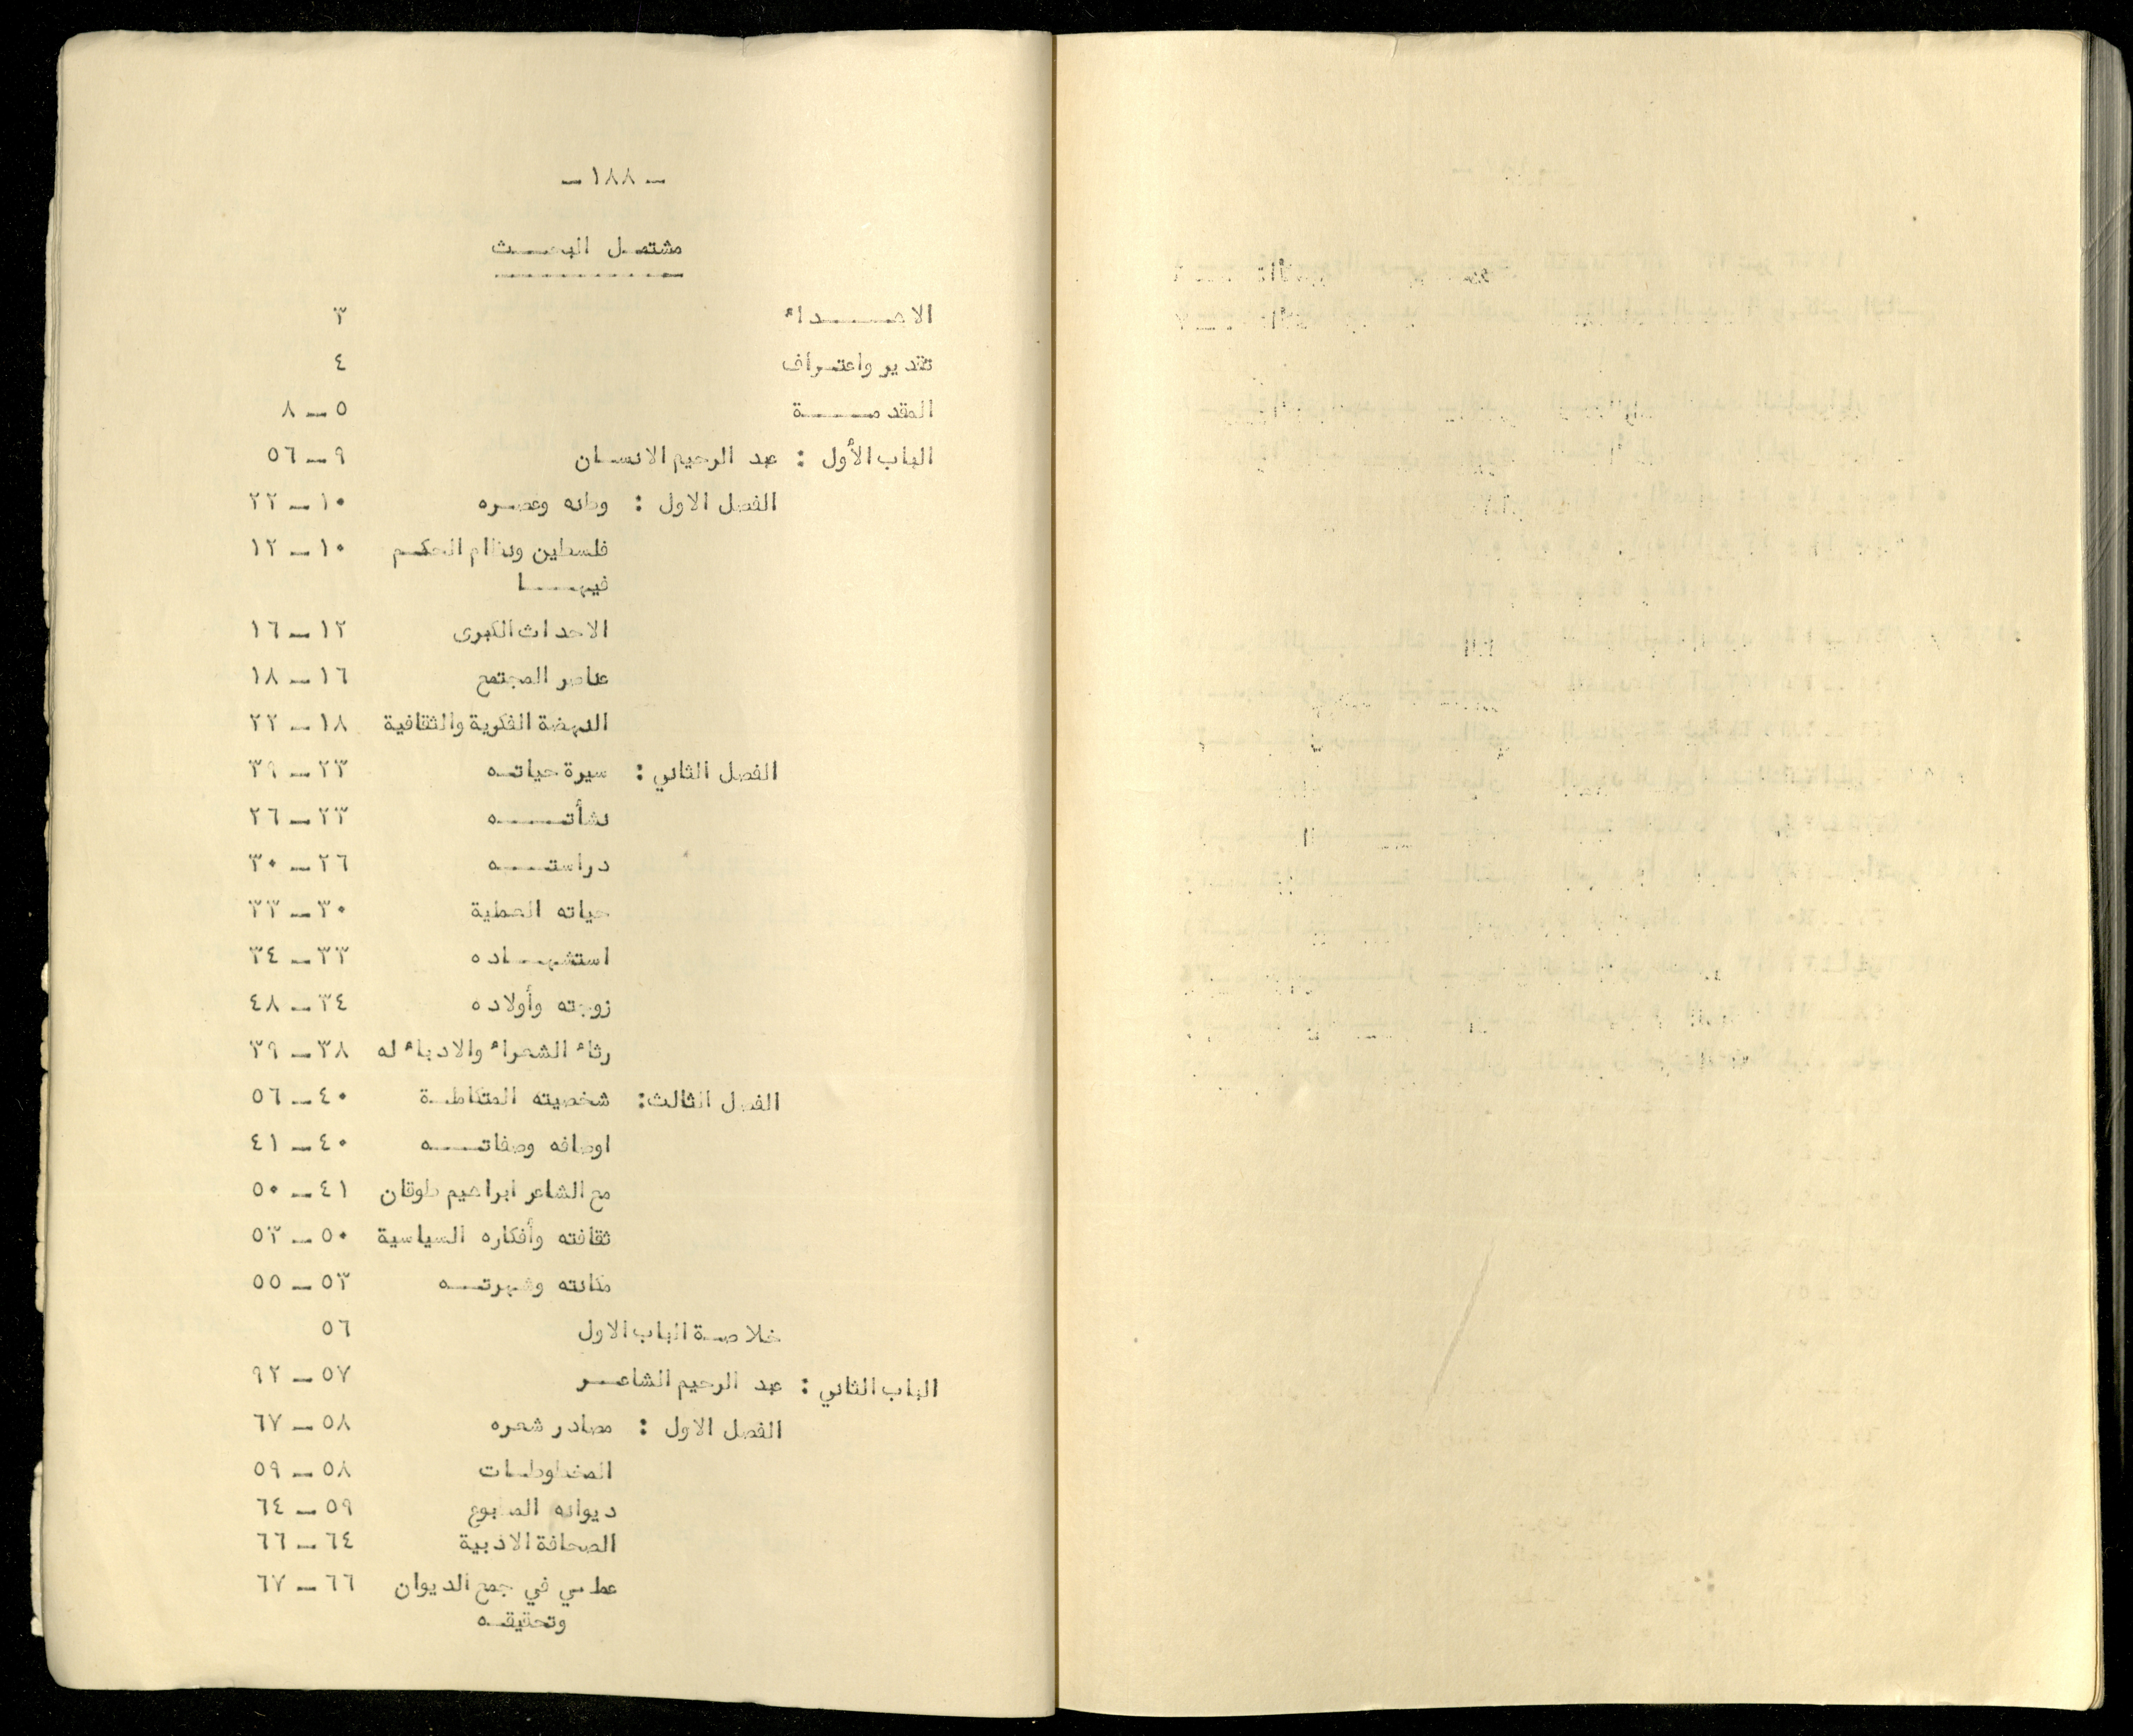 ـ ١٨٨ ـ
مشتمل البحث
الاهداء ٣
تقدير واعتراف ٤
المقدمة ٥ ـ ٨
الباب الأول : عبد الرحيم الانسان ٩ ـ ٥٦
الفصل الاول : وطنه وعصره ١٠ ـ ٢٢
فلسطين ونظام الحكم ١٠ ـ ١٢
فيها
الاحداث الكبرى ١٢ ـ ١٦
عناصر المجتمع ١٦ ـ ١٨
النهضة الفكرية والثقافية ١٨ ـ ٢٢
الفصل الثاني : سيرة حياته ٢٣ ـ ٣٩
نشأته ٢٣ ـ ٢٦
دراسته ٢٦ ـ ٣٠
حياته العملية ٣٠ ـ ٣٣
استشهاده ٣٣ ـ ٣٤
زوجته وأولاده ٣٤ ـ ٤٨
رثاء الشعراء والادباء له ٣٨ ـ ٣٩
الفصل الثالث: شخصيته المتكاملة ٤٠ ـ ٥٦
اوصافه وصفاته ٤٠ ـ ٤١
مع الشاعر ابراهيم طوقان ٤١ ـ ٥٠
ثقافته وأفكاره السياسية ٥٠ ـ ٥٣
مكانته وشهرته ٥٣ ـ ٥٥
خلاصة الباب الاول ٥٦
الباب الثاني : عبد الرحيم الشاعر ٥٧ ـ ٩٢
الفصل الاول : مصادر شعره ٥٨ ـ ٦٧
المخطوطات ٥٨ ـ ٥٩
ديوانه المطبوع ٥٩ ـ ٦٤
الصحافة الادبية ٦٤ ـ ٦٦
عملي في جمع الديوان ٦٦ ـ ٦٧
وتحقيقه